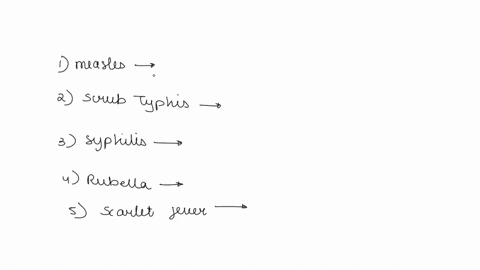 1) measles →
2) Scrub Typhis →
3) Syphilis →
4) Rubella →
5) Scarlet fever →